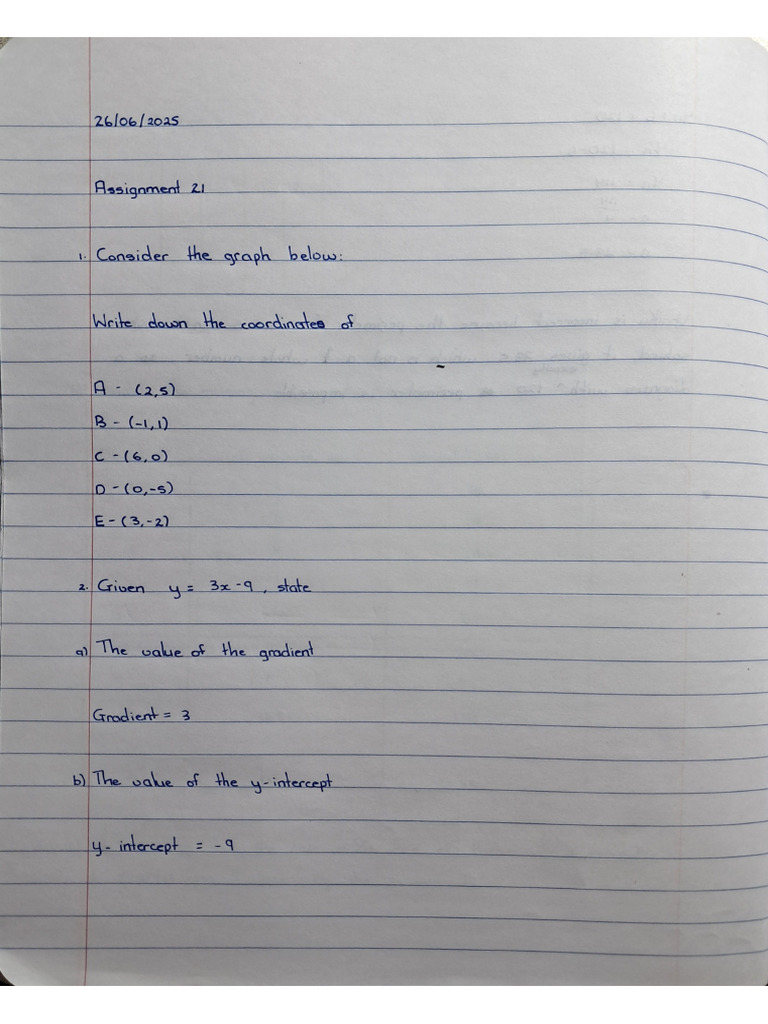 26/06/2025
Assignment 21
1. Consider the graph below:
Write down the coordinates of
A - (2,5)
B - (-1,1)
C - (6,0)
D - (0,-5)
E - (3,-2)
2. Given y = 3x - 9, state
a) The value of the gradient
Gradient = 3
b) The value of the y-intercept
y- intercept = -9